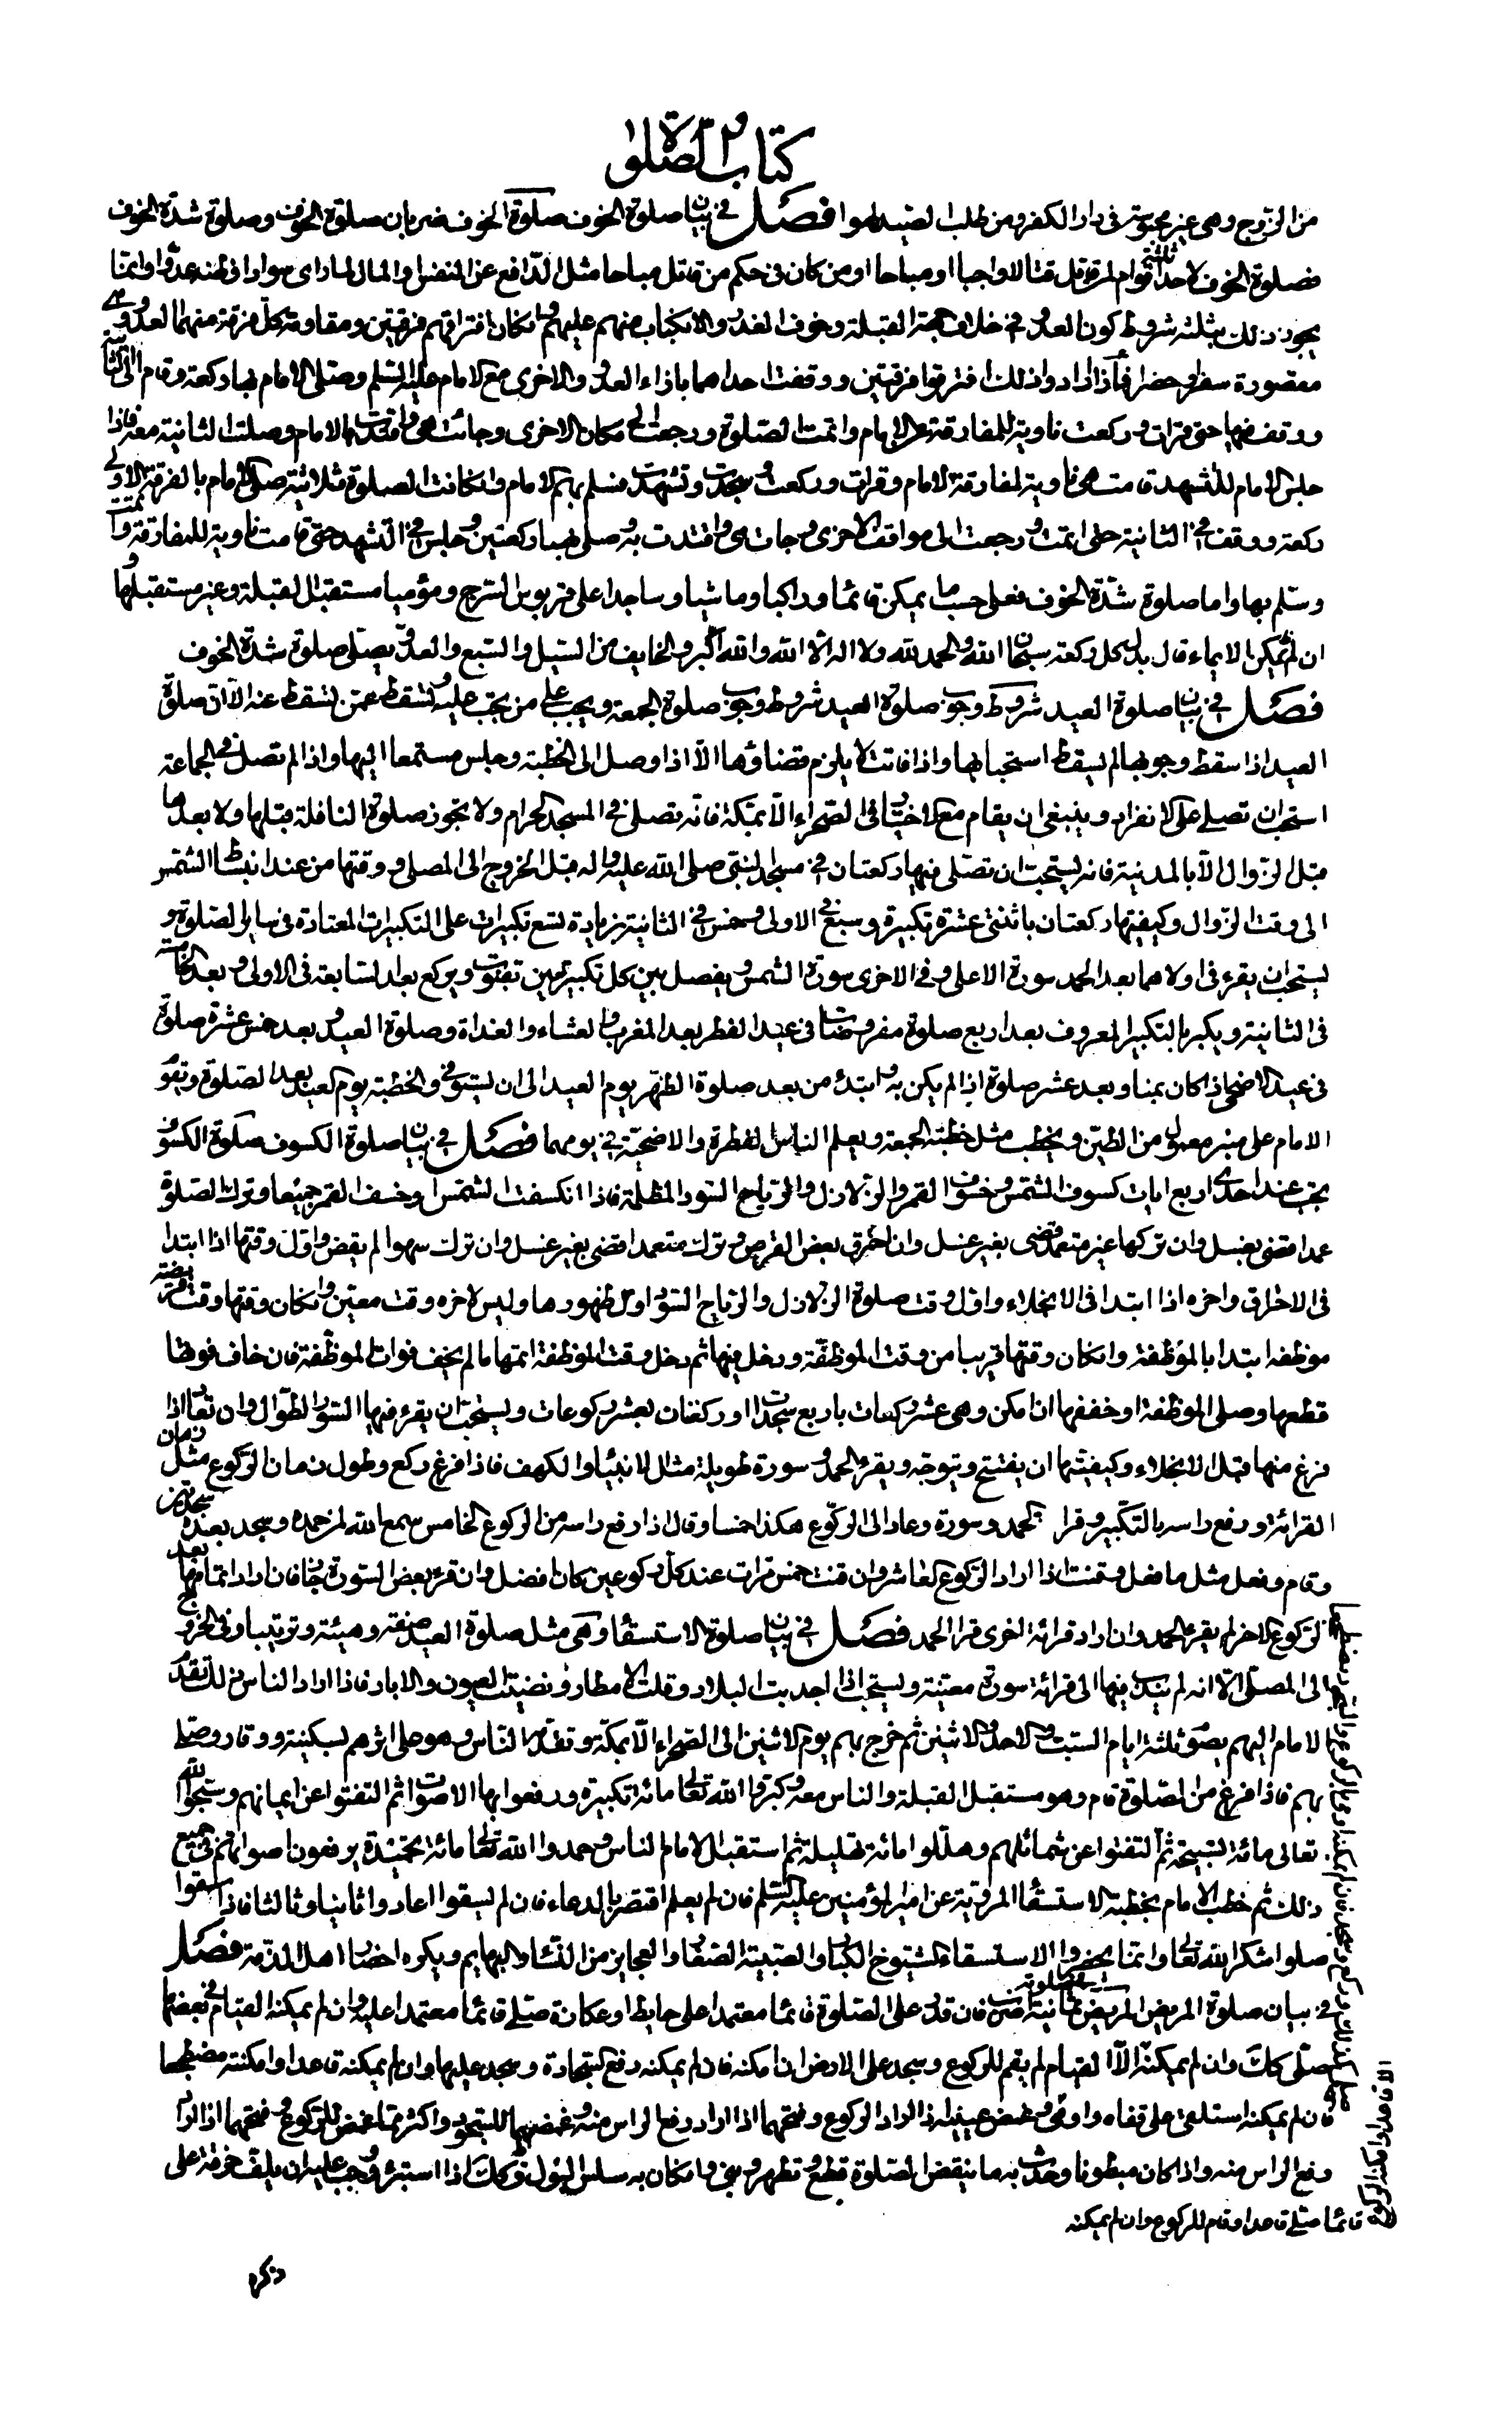 كتاب الصلوة
من الزوج وهى غير محبوسة فى دار الكفر ومن طلب الصيد لهوا فصل فى بيان صلوة الخوف صلوة الخوف ضربان صلوة الخوف وصلوة شدة الخوف
فصلوة الخوف لاحد ثلثة اقوام لمن قاتل قتالا واجبا او مباحا او من كان فى حكم من قاتل مباحا مثل الدافع عن النفس او المال لما راى سوادا فظنه عدوا وانما
يجوز ذلك بثلثة شروط كون العدو فى خلاف جهة القبلة وخوف الغدر والانكباب منهم عليهم وامكان افتراقهم فرقتين ومقاومة كل فرقة منهما العدو وهى
مقصورة سفرا وحضرا فاذا ارادوا ذلك افترقوا فرقتين ووقفت احداهما بازاء العدو والاخرى مع الامام عليه السلم وصلى الامام بها ركعة وقام الى الثانية
ووقف فيها حتى قرات وركعت ناوية للمفارقة عن الامام واتمت الصلوة ورجعت الى مكان الاخرى وجائت هى واقتدت بالامام وصلت الثانية معه فاذا
جلس الامام للتشهد قامت هى ناوية لمفارقة الامام وقرات وركعت وسجدت وتشهدت فسلم بهم الامام وان كانت الصلوة ثلاثية صلى الامام بالفرقة الاولى
ركعة ووقف فى الثانية حتى اتمت ورجعت الى مواقف الاخرى وجات هى واقتدت به وصلى بها ركعتين وجلس فى التشهد حتى قامت ناوية للمفارقة واتمت
وسلم بها واما صلوة شدة الخوف فعلى حسب ما يمكن قائما وراكبا وماشيا وساجدا على قربوس السرج ومؤميا مستقبل القبلة وغير مستقبلها و
ان لم يمكن الايماء قال بدل كل ركعة سبحان الله والحمد لله ولا اله الا الله والله اكبر والخايف من السيل والسبع والعدو يصلى صلوة شدة الخوف
فصل فى بيان صلوة العيد شروط وجوب صلوة العيد شروط وجوب صلوة الجمعة ويجب على من يجب عليه وتسقط عمن تسقط عنه الا ان صلوة
العيد اذا سقط وجوبها لم يسقط استحبابها واذا فاتت لا يلزم قضاؤها الا اذا وصل الى الخطبة وجلس مستمعا اليها واذا لم تصل فى الجماعة
استحب ان تصلى على الانفراد وينبغى ان يقام مع الاختيار فى الصحراء الا بمكة فانه تصلى فى المسجد الحرام ولا تجوز صلوة النافلة قبلها ولا بعدها
قبل الزوال الا بالمدينة فانه يستحب ان تصلى فيها ركعتان فى مسجد النبى صلى الله عليه واله قبل الخروج الى المصلى و وقتها من عند انبساط الشمس
الى وقت الزوال وكيفيتها ركعتان باثنتى عشرة تكبيرة وسبع فى الاولى وخمس فى الثانية بزيادة تسع تكبيرات على التكبيرات المعتادة فى ساير الصلوة و
يستحب ان يقرء فى اولاهما بعد الحمد سورة الاعلى وفى الاخرى سورة الشمس ويفصل بين كل تكبيرتين بقنوت ويركع بعد السابعة فى الاولى وبعد الخامسة
فى الثانية ويكبر بالتكبير المعروف بعد اربع صلوة مفروضات فى عيد الفطر بعد المغرب والعشاء والغداة وصلوة العيد وبعد خمس عشرة صلوة
فى عيد الاضحى اذا كان بمنا وبعد عشر صلوة اذا لم يكن به وابتدء من بعد صلوة الظهر يوم العيد الى ان يستوفى والخطبة يوم العيد بعد الصلوة ويقوم
الامام على منبر معمول من الطين ويخطب مثل خطبة الجمعة ويعلم الناس الفطرة والاضحية فى يومهما فصل فى بيان صلوة الكسوف صلوة الكسوف
يجب عند احدى اربع ايات كسوف الشمس وخسوف القمر والزلازل والرياح السود المظلمة فاذا انكسفت الشمس او خسف القمر جميعا وترك الصلوة
عمدا قضى بغسل وان تركها غير متعمد قضى بغير غسل وان احترق بعض القرص وترك متعمدا قضى بغير غسل وان ترك سهوا لم يقض واول وقتها اذا ابتدا
فى الاحتراق واخره اذا ابتدا فى الانجلاء واول وقت صلوة الزلازل والرياح السود اول ظهورها وليس لاخره وقت معين وان كان وقتها وقت فريضة
موظفة ابتدا بالموظفة وان كان وقتها قريبا من وقت الموظفة ودخل فيها ثم دخل وقت الموظفة اتمها ما لم يخف فوات الموظفة فان خاف فوتها
قطعها وصلى الموظفة او خففها ان امكن وهى عشر ركعات باربع سجدات او ركعتان بعشر ركوعات ويستحب ان يقرء فيها السور الطوال وان تعاد اذا
فرغ منها قبل الانجلاء وكيفيتها ان يفتتح ويتوجه ويقرء الحمد وسورة طويلة مثل الانبياء او الكهف فاذا فرغ ركع وطول زمان الركوع مثل زمان
القرائة ورفع راسه بالتكبير وقرا الحمد وسورة وعاد الى الركوع هكذا خمسا وقال اذا رفع راسه من الركوع الخامس سمع الله لمن حمده وسجد بعده سجدتين
وقام وفعل مثل ما فعل وقنت اذا اراد الركوع العاشر وان قنت خمس مرات عند كل ركوعين كان افضل وان قرء بعض السورة جاز فان اراد اتمامها بعد
الركوع الاخر لم يقرء الحمد وان اراد قرائة اخرى قرا الحمد فصل فى بيان صلوة الاستسقاء وهى مثل صلوة العيد صفة وهيئة وترتيبا وفى الخروج
الى المصلى الا انه لم يتبين فيها الى قرائة سورة معينة ويستحب اذا اجدبت البلاد وقلت الامطار ونضبت العيون والابار فاذا اراد الناس ذلك تقدم
الامام اليهم بصوم ثلثة ايام السبت والاحد والاثنين ثم خرج بهم يوم الاثنين الى الصحراء الا بمكة وتقدم الناس وهو على اثرهم بسكينة ووقار وصلى
بهم فاذا فرغ من الصلوة قام وهو مستقبل القبلة والناس معه وكبروا الله تعالى مائة تكبيرة ورفعوا بها الاصوات ثم التفتوا عن ايمانهم وسبحوا الله
تعالى مائة تسبيحة ثم التفتوا عن شمائلهم وهللوا مائة تهليلة ثم استقبل الامام الناس وحمدوا الله تعالى مائة تحميدة يرفعون اصواتهم فى جميع
ذلك ثم خطب الامام بخطبة الاستسقاء المروية عن امير المؤمنين عليه السلم فان لم يعلم اقتصر بالدعاء فان لم يسقوا اعادوا ثانيا وثالثا فاذا سقوا
صلوا شكرا لله تعالى وانما يحضر الاستسقاء الشيوخ الكبار والصبية الصغار والعجايز من النساء والبهايم ويكره احضار اهل الذمة فصل
فى بيان صلوة المريض المريض فى صلوته ثمانية اضرب فان قدر على الصلوة قائما معتمدا على حايط او عكازة صلى قائما معتمدا عليه وان لم يمكنه القيام فى بعضها
صلى كك وان لم يمكنه الا القيام لم يقم للركوع وسجد على الارض ان امكنه فان لم يمكنه رفع السجادة وسجد عليها وان لم يمكنه قاعدا وامكنته مضطجعا
فان لم يمكنه استلقى على قفاه واومى وغمض عينيه اذا اراد الركوع وفتحهما اذا اراد رفع الراس منه وغمضهما للسجود اكثر مما غمض للركوع وفتحهما اذا اراد
رفع الراس منه واذا كان مبطونا وحدث به ما ينقض الصلوة قطع وتطهر وبنى وان كان به سلس البول فكك اذا استبرء وجب عليه ان يلف خرقة على
قائما صلى قاعدا وقام للركوع وان لم يمكنه
ذكره